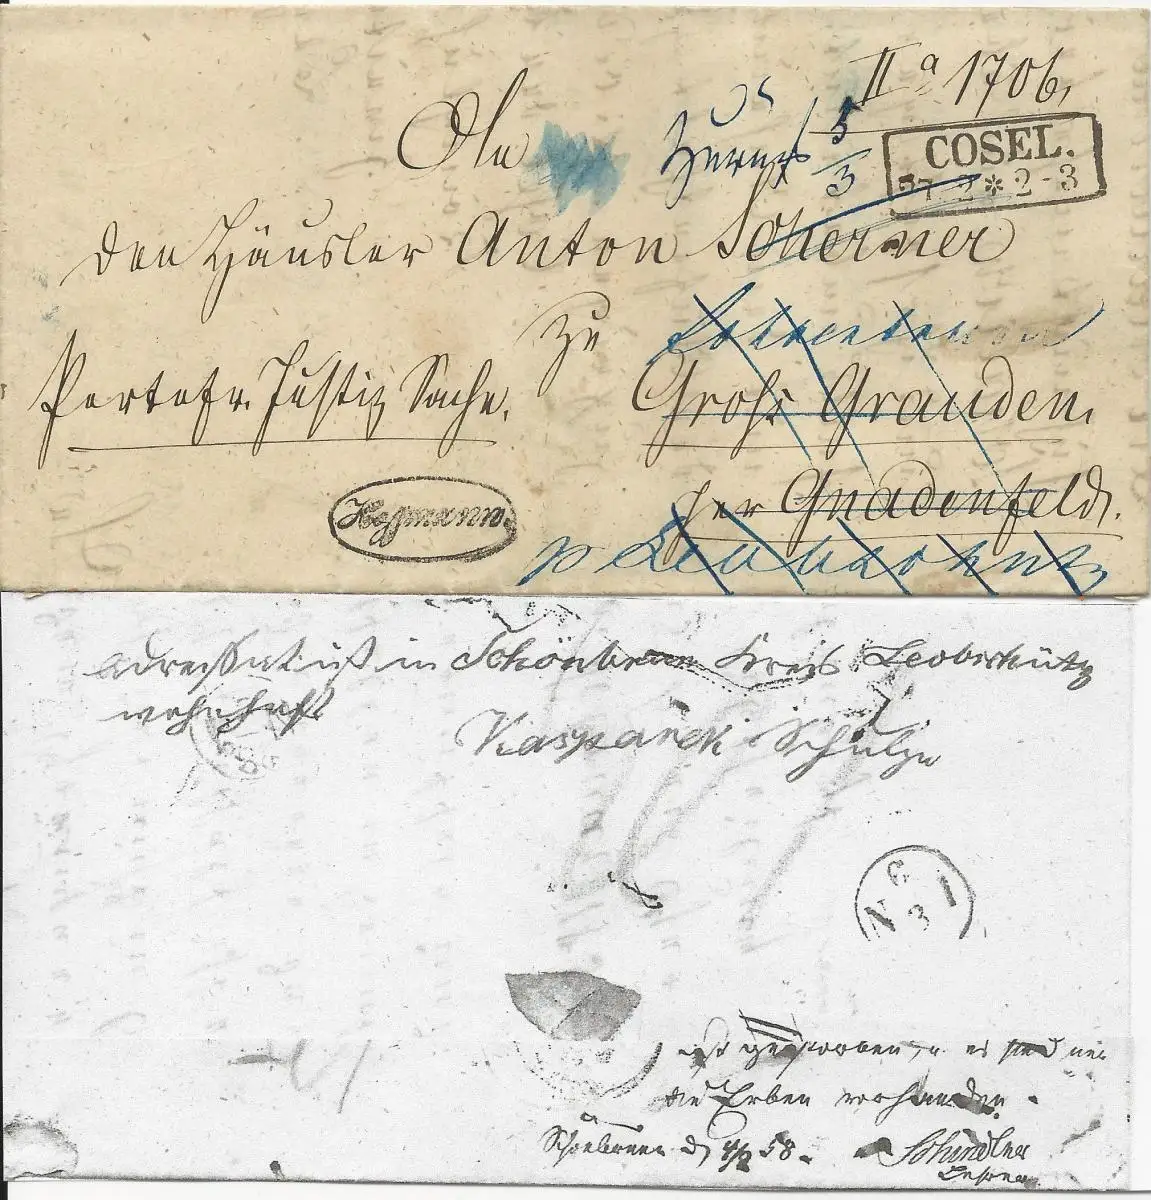 II a 1706.
An
zurück 5/3
COSEL.
27 2 * 2-3
den Häusler Anton Scherner
zu
Portofr. Justiz Sache.
Groß Grauden.
per Gnadenfeld.
Hoffmann.
p Leobschütz
Adressat ist in Schönbrunn Kreis Leobschütz
wohnhaft
Kasparek Schulze
N 1
3
ist gestorben, u es sind nur
die Erben vorhanden.
Schönbrunn d 4/3 58. Schindler